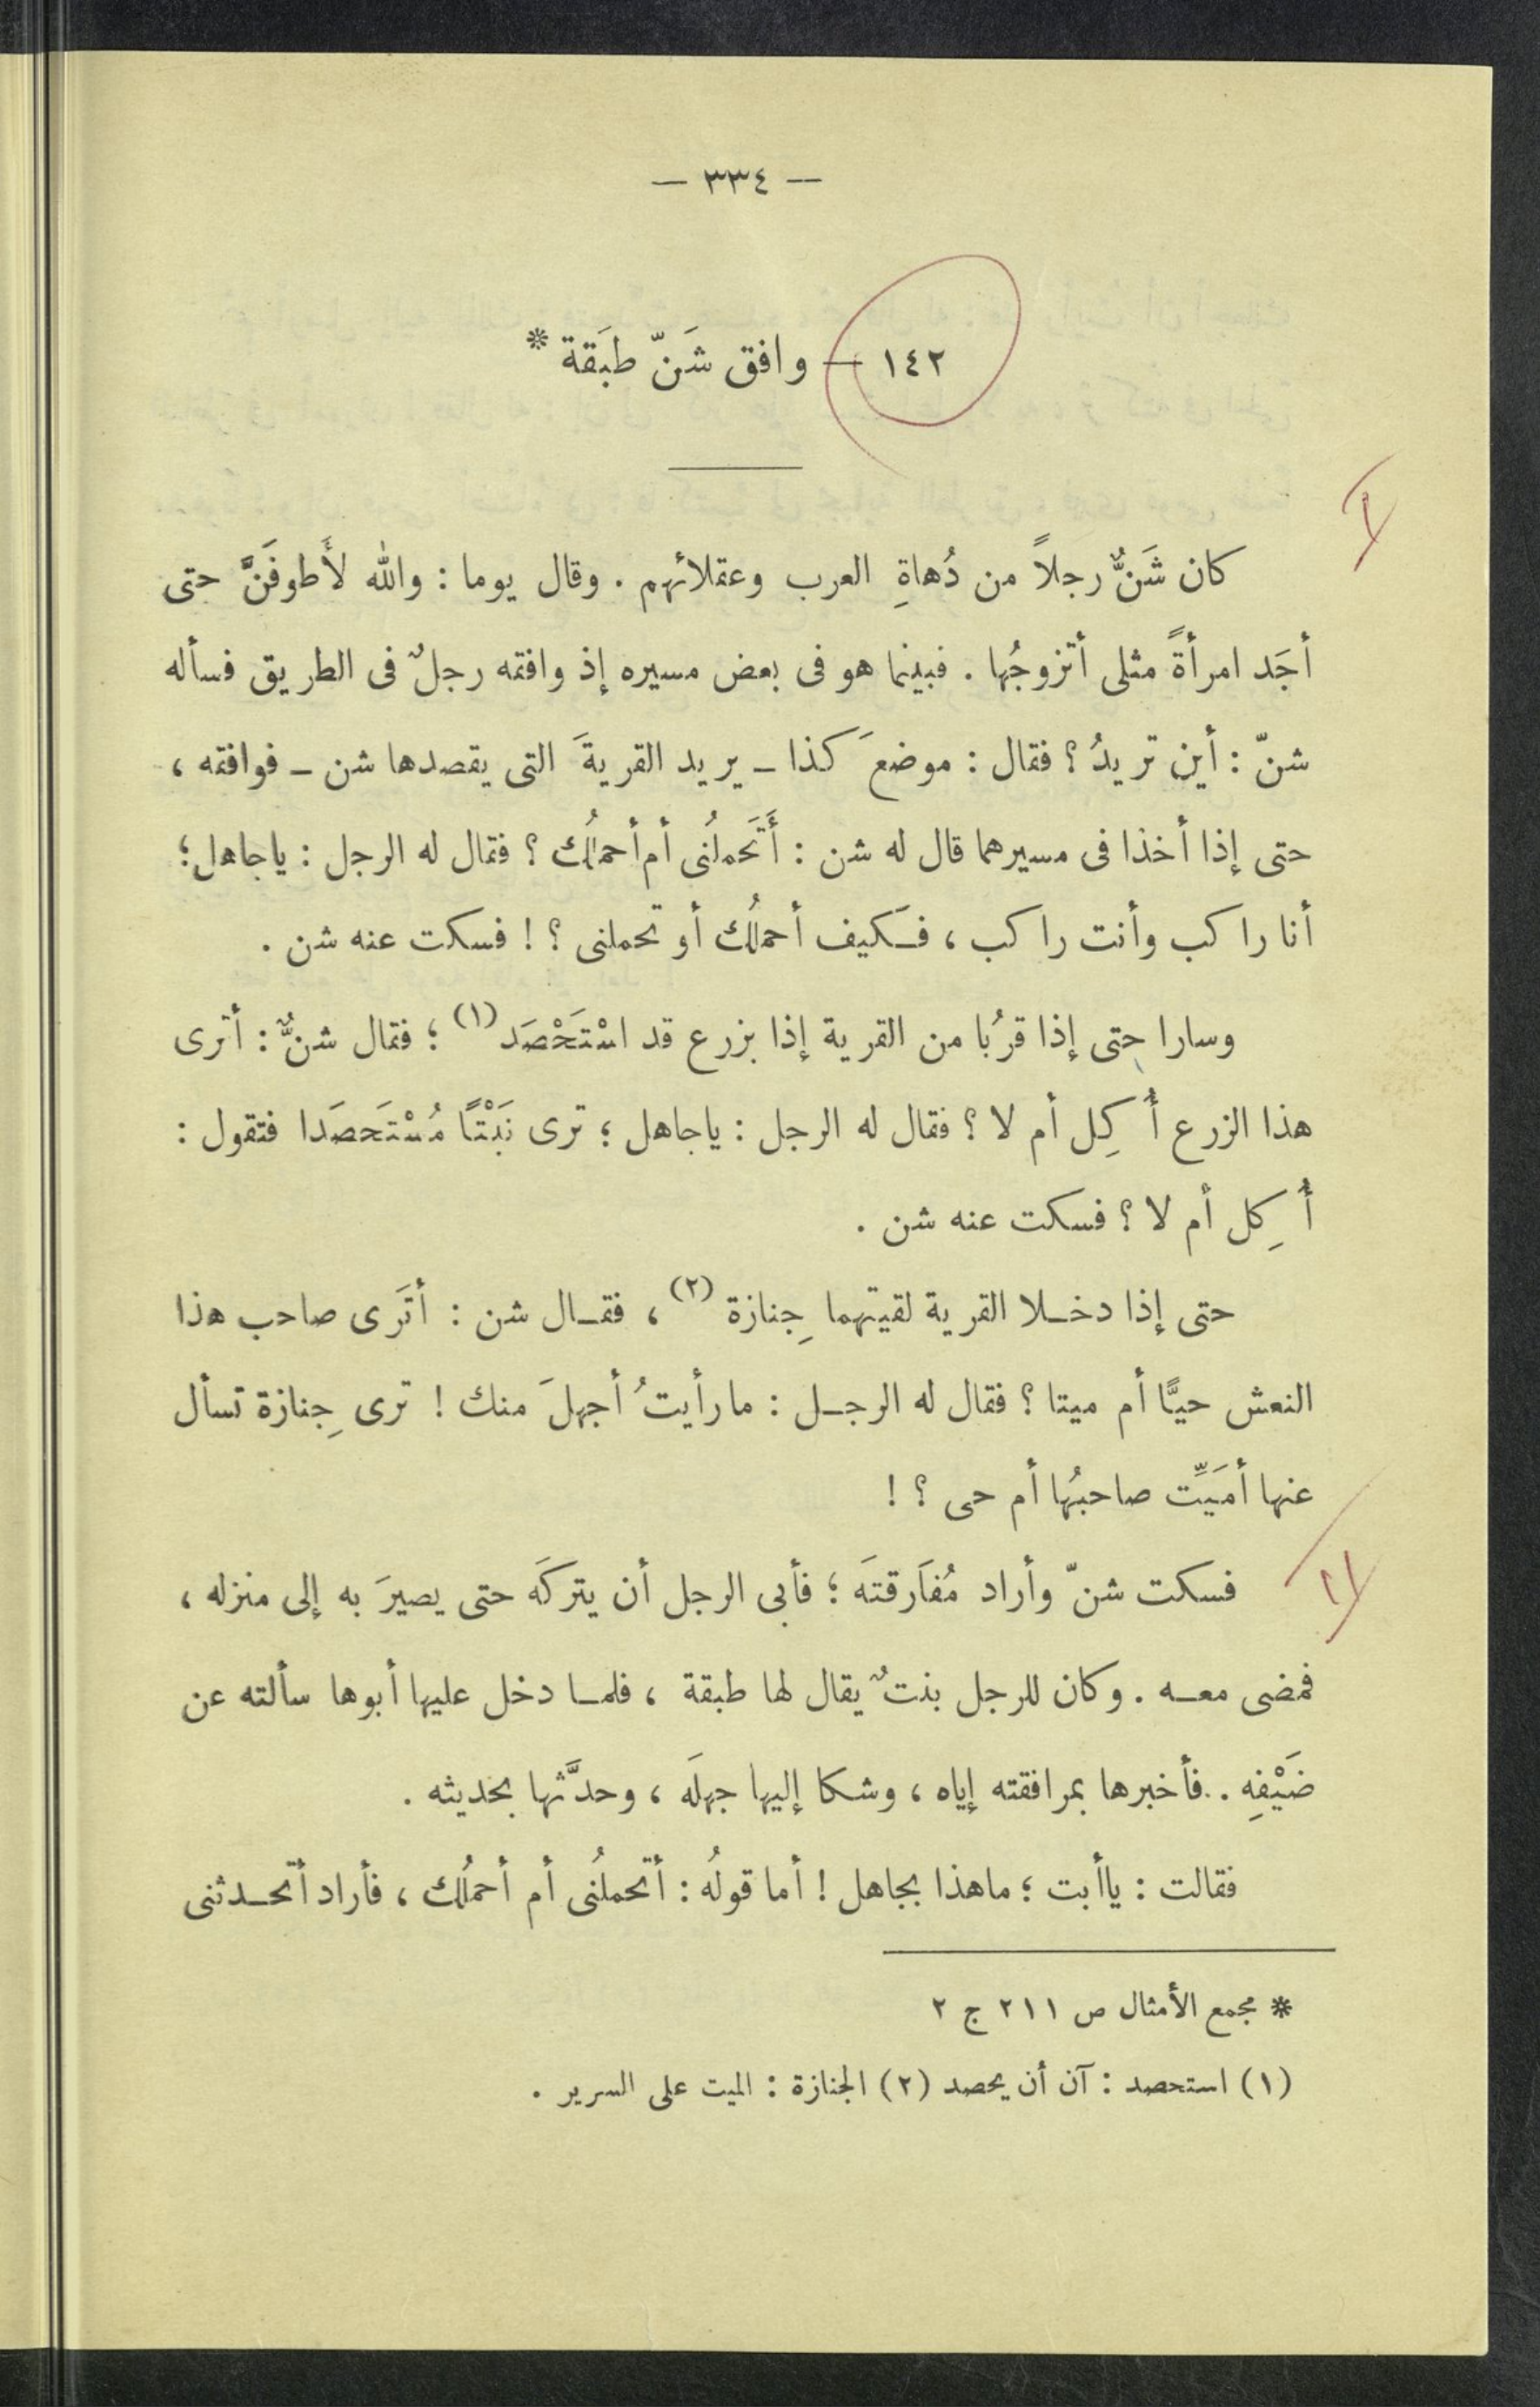 — ٣٣٤ —
١٤٢ — وافق شَنّ طبَقة *
كان شَنٌّ رجلاً من دُهاةِ العرب وعقلائهم . وقال يوما : والله لأَطوفَنَّ حتى
أجَد امرأةً مثلى أتزوجُها . فبينما هو فى بعض مسيره إذ وافقه رجلٌ فى الطريق فسأله
شنّ : أين تريدُ ؟ فقال : موضعَ كذا ـ يريد القريةَ التى يقصدها شن ـ فوافقه ،
حتى إذا أخذا فى مسيرهما قال له شن : أَتَحملُنى أم أحملُك ؟ فقال له الرجل : ياجاهل ؛
أنا راكب وأنت راكب ، فـكيف أحملُك أو تحملنى ؟ ! فسكت عنه شن .
وسارا حتى إذا قرُبا من القرية إذا بزرع قد اسْتَحْصَد (١) ؛ فقال شنٌّ : أترى
هذا الزرع أُكِل أم لا ؟ فقال له الرجل : ياجاهل ؛ ترى نَبْتًا مُسْتَحصَدا فتقول :
أُكِل أم لا ؟ فسكت عنه شن .
حتى إذا دخـلا القرية لقيتهما جِنازة (٢) ، فقـال شن : أتَرى صاحب هذا
النعش حيًّا أم ميتا ؟ فقال له الرجـل : ما رأيتُ أجهلَ منك ! ترى جِنازة تسأل
عنها أمَيِّت صاحبُها أم حى ؟ !
فسكت شنّ وأراد مُفاَرقتَه ؛ فأبى الرجل أن يتركَه حتى يصيرَ به إلى منزله ،
فمضى معـه . وكان للرجل بنتٌ يقال لها طبقة ، فلمـا دخل عليها أبوها سألته عن
ضَيْفِه . فأخبرها بمرافقته إياه ، وشكا إليها جهلَه ، وحدَّثها بحديثه .
فقالت : ياأبت ؛ ماهذا بجاهل ! أما قولُه : أتحملُنى أم أحملُك ، فأراد أتحـدثنى
* مجمع الأمثال ص ٢١١ ج ٢
(١) استحصد : آن أن يحصد (٢) الجنازة : الميت على السرير .